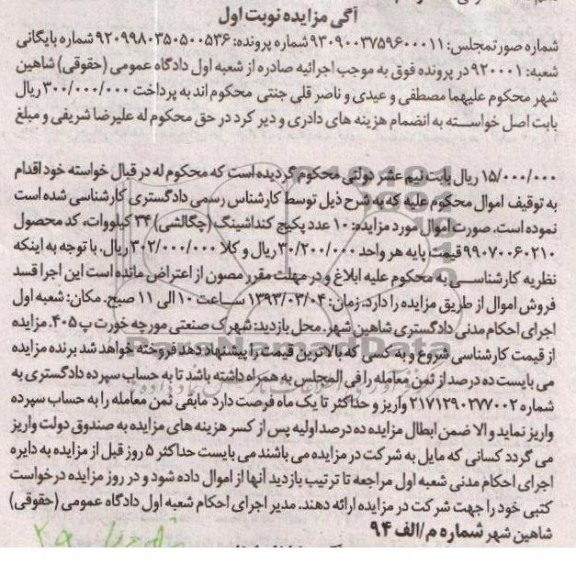 آگی مزایده نوبت اول
شماره صورتمجلس: ۹۳۰۹۰۰۳۷۵۹۶۰۰۰۱۱ شماره پرونده: ۹۲۰۹۹۸۰۳۵۰۵۰۰۵۳۶ شماره بایگانی
شعبه: ۹۲۰۰۰۱ در پرونده فوق به موجب اجرائیه صادره از شعبه اول دادگاه عمومی (حقوقی) شاهین
شهر محکوم علیهما مصطفی و عیدی و ناصر قلی جنتی محکوم اند به پرداخت ۳۰۰/۰۰۰/۰۰۰ ریال
بابت اصل خواسته به انضمام هزینه های دادری و دیر کرد در حق محکوم له علیرضا شریفی و مبلغ
۱۵/۰۰۰/۰۰۰ ریال بابت نیم عشر دولتی محکوم گردیده است که محکوم له در قبال خواسته خود اقدام
به توقیف اموال محکوم علیه که به شرح ذیل توسط کارشناس رسمی دادگستری کارشناسی شده است
نموده است. صورت اموال مورد مزایده: ۱۰ عدد پکیج کنداشینگ (چگالشی) ۳۴ کیلووات، کد محصول
۹۹۰۷۰۰۶۰۲۱۰ قیمت پایه هر واحد ۳۰/۲۰۰/۰۰۰ ریال و کلا ۳۰۲/۰۰۰/۰۰۰ ریال. با توجه به اینکه
نظریه کارشناسی به محکوم علیه ابلاغ و در مهلت مقرر مصون از اعتراض مانده است این اجرا قسد
فروش اموال از طریق مزایده را دارد. زمان: ۱۳۹۳/۰۳/۰۴ ساعت ۱۰ الی ۱۱ صبح. مکان: شعبه اول
اجرای احکام مدنی دادگستری شاهین شهر. محل بازدید: شهرک صنعتی مورچه خورت پ ۴۰۵. مزایده
از قیمت کارشناسی شروع و به کسی که بالاترین قیمت را پیشنهاد دهد فروخته خواهد شد برنده مزایده
می بایست ده درصد از ثمن معامله را فی المجلس به همراه داشته باشد تا به حساب سپرده دادگستری به
شماره ۲۱۷۱۲۹۰۲۷۷۰۰۲ واریز و حداکثر تا یک ماه فرصت دارد مابقی ثمن معامله را به حساب سپرده
واریز نماید و الا ضمن ابطال مزایده ده درصد اولیه پس از کسر هزینه های مزایده به صندوق دولت واریز
می گردد کسانی که مایل به شرکت در مزایده می باشند می بایست حداکثر ۵ روز قبل از مزایده به دایره
اجرای احکام مدنی شعبه اول مراجعه تا ترتیب بازدید آنها از اموال داده شود و در روز مزایده درخواست
کتبی خود را جهت شرکت در مزایده ارائه دهند. مدیر اجرای احکام شعبه اول دادگاه عمومی (حقوقی)
شاهین شهر شماره م/الف ۹۴
ParsNamadData